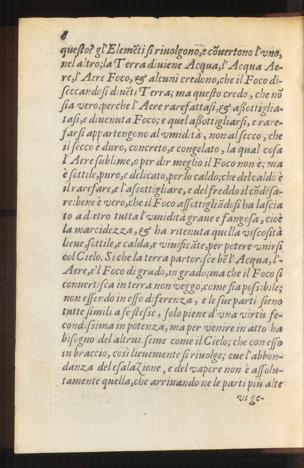 8
questo? gl'Elemẽti si riuolgono, e cõuertono l'vno,
nel altro; la Terra diuiene Acqua, l'Acqua Ae-
re, l'Aere Foco, & alcuni credono, che il Foco di-
seccandosi diuẽti Terra; ma questo credo, che nõ
sia vero: perche l'Aere rarefattasi, & assottiglia-
tasi, e diuenuta Foco; e quel assottigliarsi, e rare-
farsi appartengono al vmidità, non al secco, che
il secco è duro, concreto, e congelato, la qual cosa
l'Aere sublime, o per dir meglio il Foco non è; ma
è sottile, puro, e delicato, per lo caldo; che del caldo è
il rarefare, e l'assottigliare, e del freddo il cõdẽsa-
re: bene è vero, che il Foco assottigliãdosi ha lascia
to a dietro tutta l'vmidità graue e fangosa, cioè
la marcidezza, & ha ritenuta quella viscosità
lieue, sottile, e calda, e viuificãte, per potere vnirsi
col Cielo. Si che la terra partorisce bẽ l'Acqua, l'-
Aere, e'l Foco di grado, in grado; ma che il Foco si
conuertisca in terra non veggo, come sia possibile;
non essendo in esso diferenza, e le sue parti sieno
tutte simili a se stesse, solo piene d'vna virtù fe-
condissima in potenza, ma per venire in atto ha
bisogno del altrui seme come il Cielo; che con esso
in braccio, così lieuemente si riuolge; oue l'abbon-
danza del esalaziõne, e del vapore non è assolu-
tamente quella, che arriuando ne le parti più alte
vi ge-